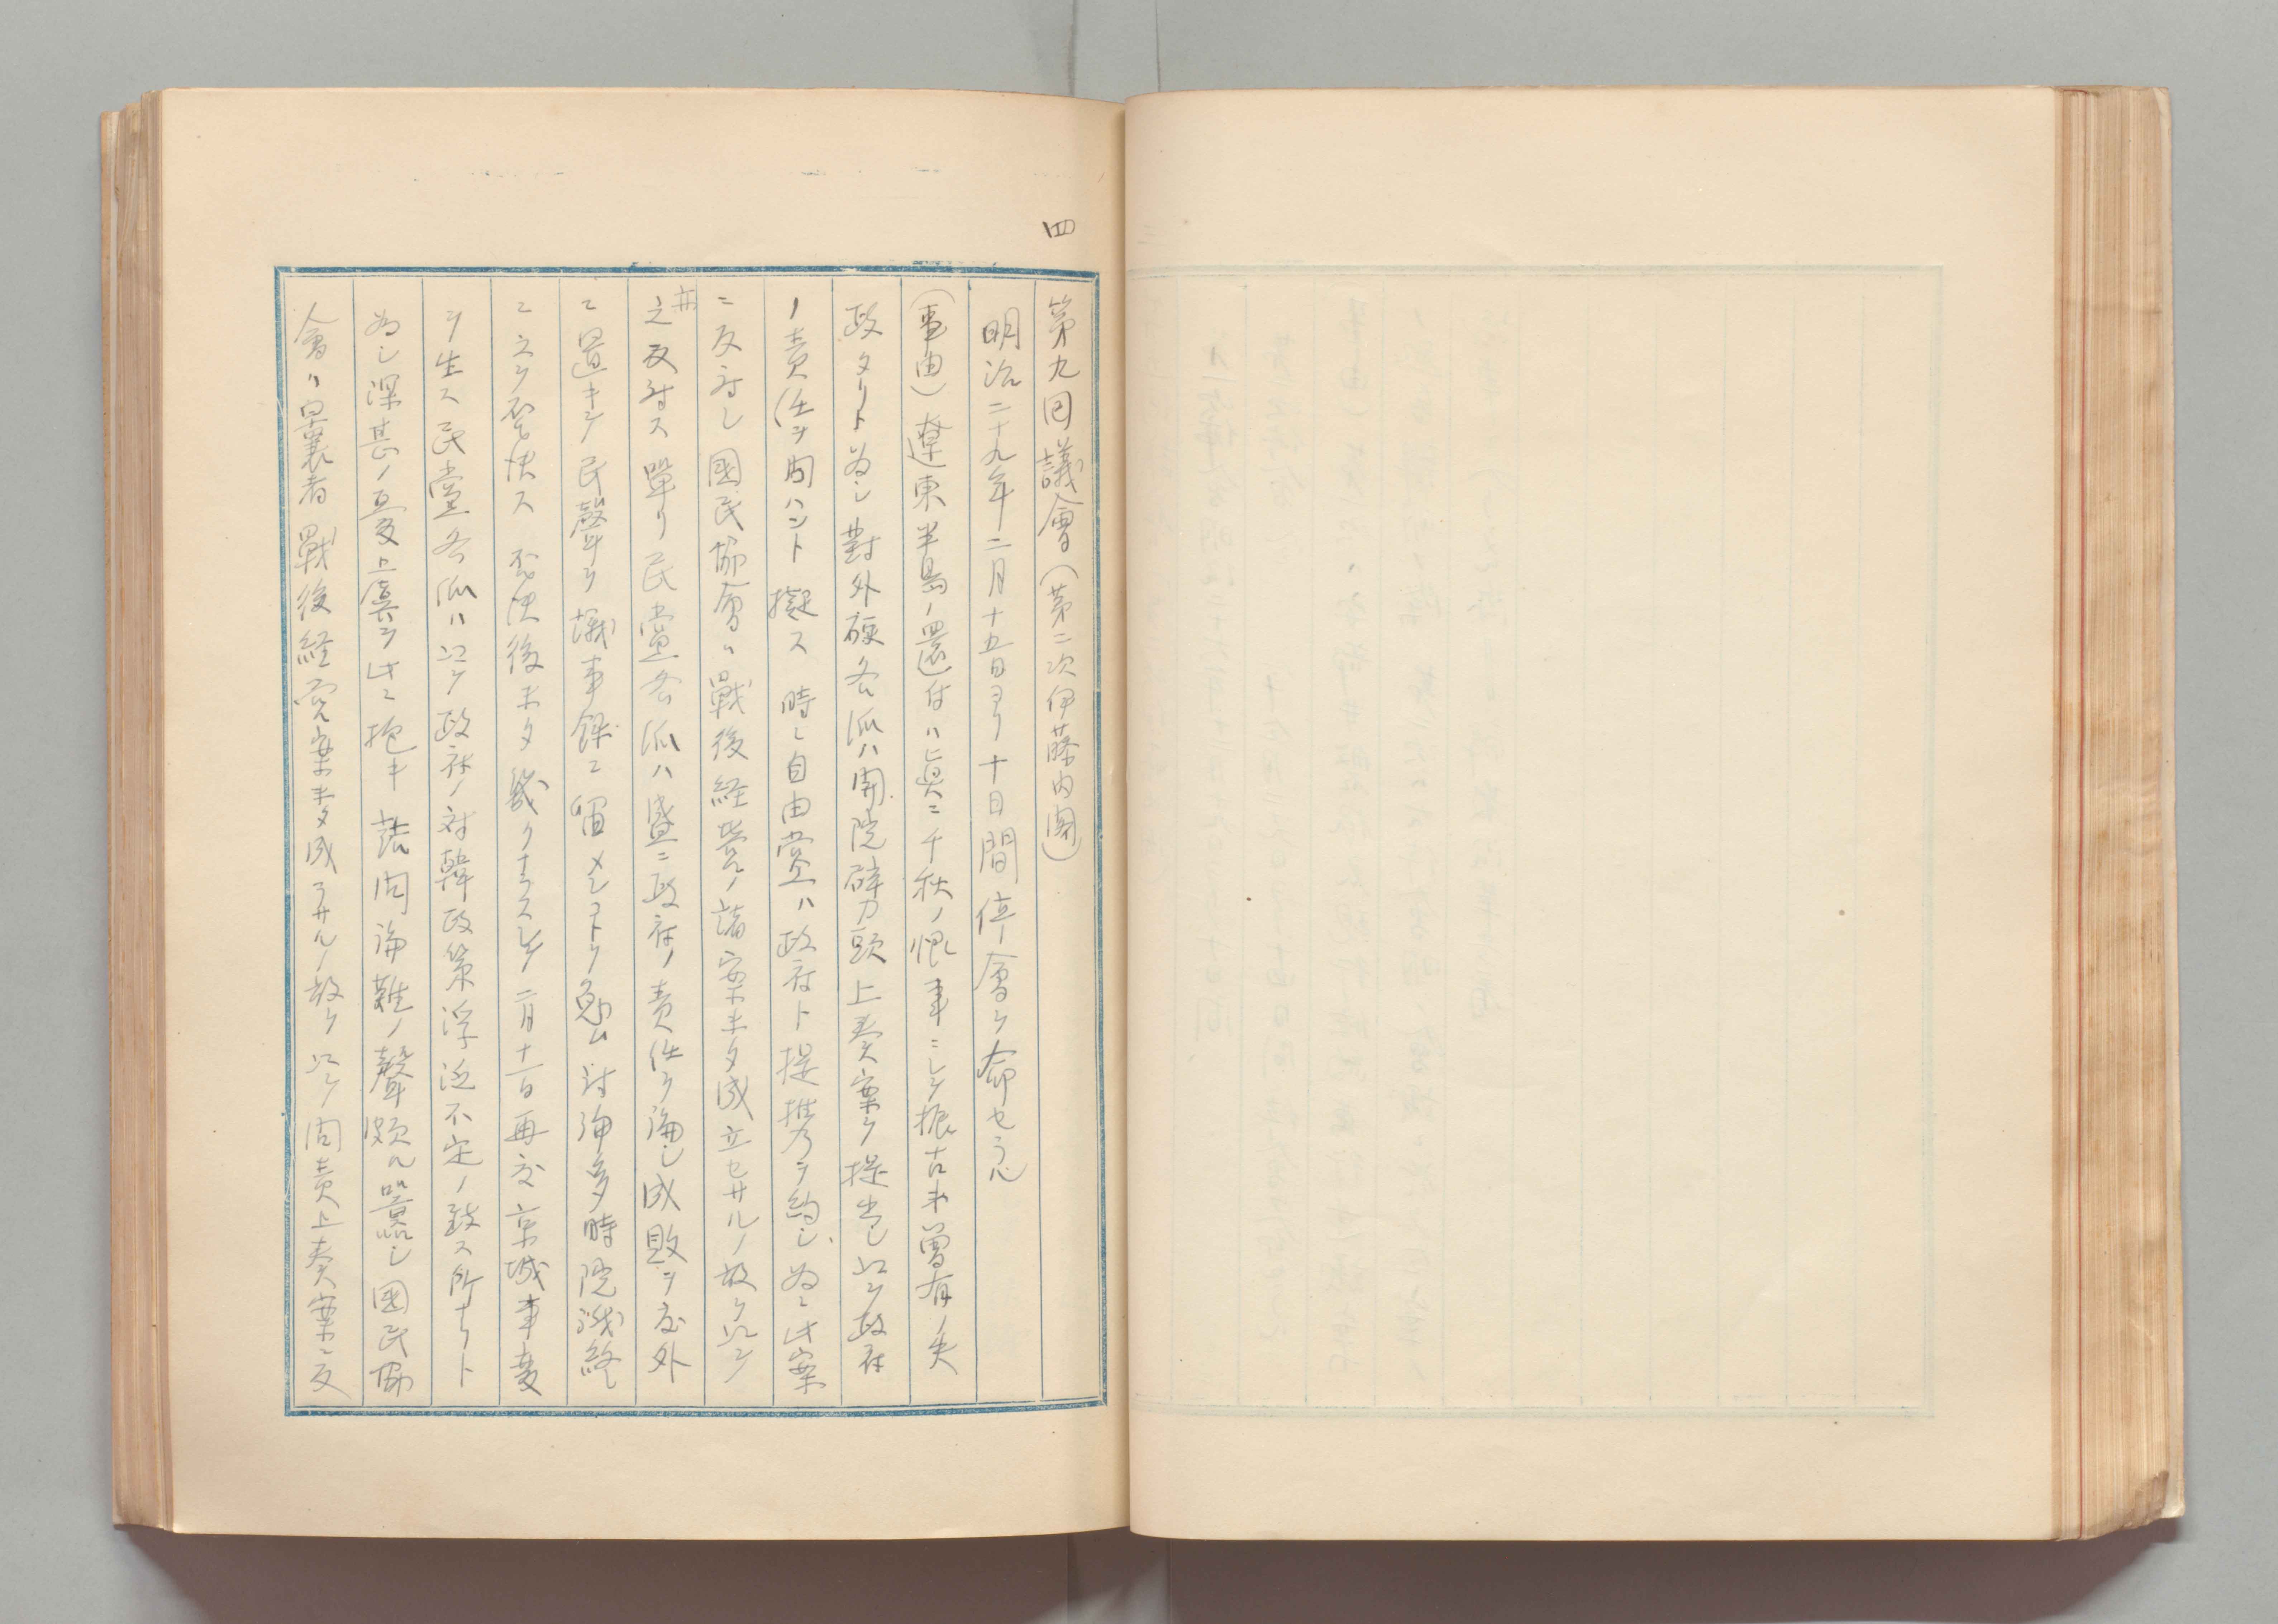 四
第九回議會（第二次伊藤内閣）
明治二十九年二月十五日ヨリ十日間停會ヲ命セラル
（事由）遼東半島ノ還付ハ眞ニ千秋ノ恨事ニシテ振古未曽有ノ失
政タリト為シ對外硬各派ハ開院劈頭上奏案ヲ提出シ以テ政府
ノ責任ヲ問ハント擬ス時ニ自由黨ハ政府ト提携ヲ約シ為ニ此案
ニ反対シ國民協會ハ戰後経営ノ諸案未タ成立セサルノ故ヲ以テ
之反対ス獨リ民黨各派ハ盛ニ政府ノ責任ヲ論シ成敗ヲ度外
ニ置キテ民聲ヲ議事録ニ留メンコトヲ勉ム討論多時院議終
ニ之ヲ否決ス否決後未タ幾クナラスシテ二月十一日再度京城事変
ヲ生ス民黨各派ハ以テ政府ノ対韓政策浮泛不定ノ致ス所ナリト
為シ深甚ノ憂虞ヲ此ニ抱キ詰問論難ノ聲頗ル囂然シ國民協
會ハ曩者戰後経営案未タ成ラサルノ故ヲ以テ問責上奏案ニ反